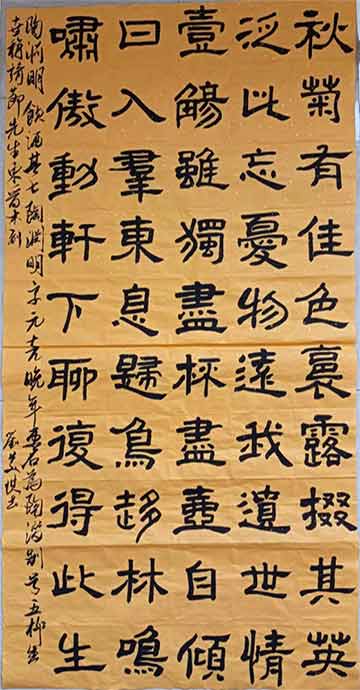 秋菊有佳色裛露掇其英
泛此忘憂物遠我遺世情
壹觴雖獨盡杯盡壺自傾
日入羣東息歸鳥趍林鳴
嘯傲動軒下聊復得此生
陶渊明飲酒其七陶渊明字元亮晚年更名為陶潜别号五柳先生
靖節先生東晋末到
书